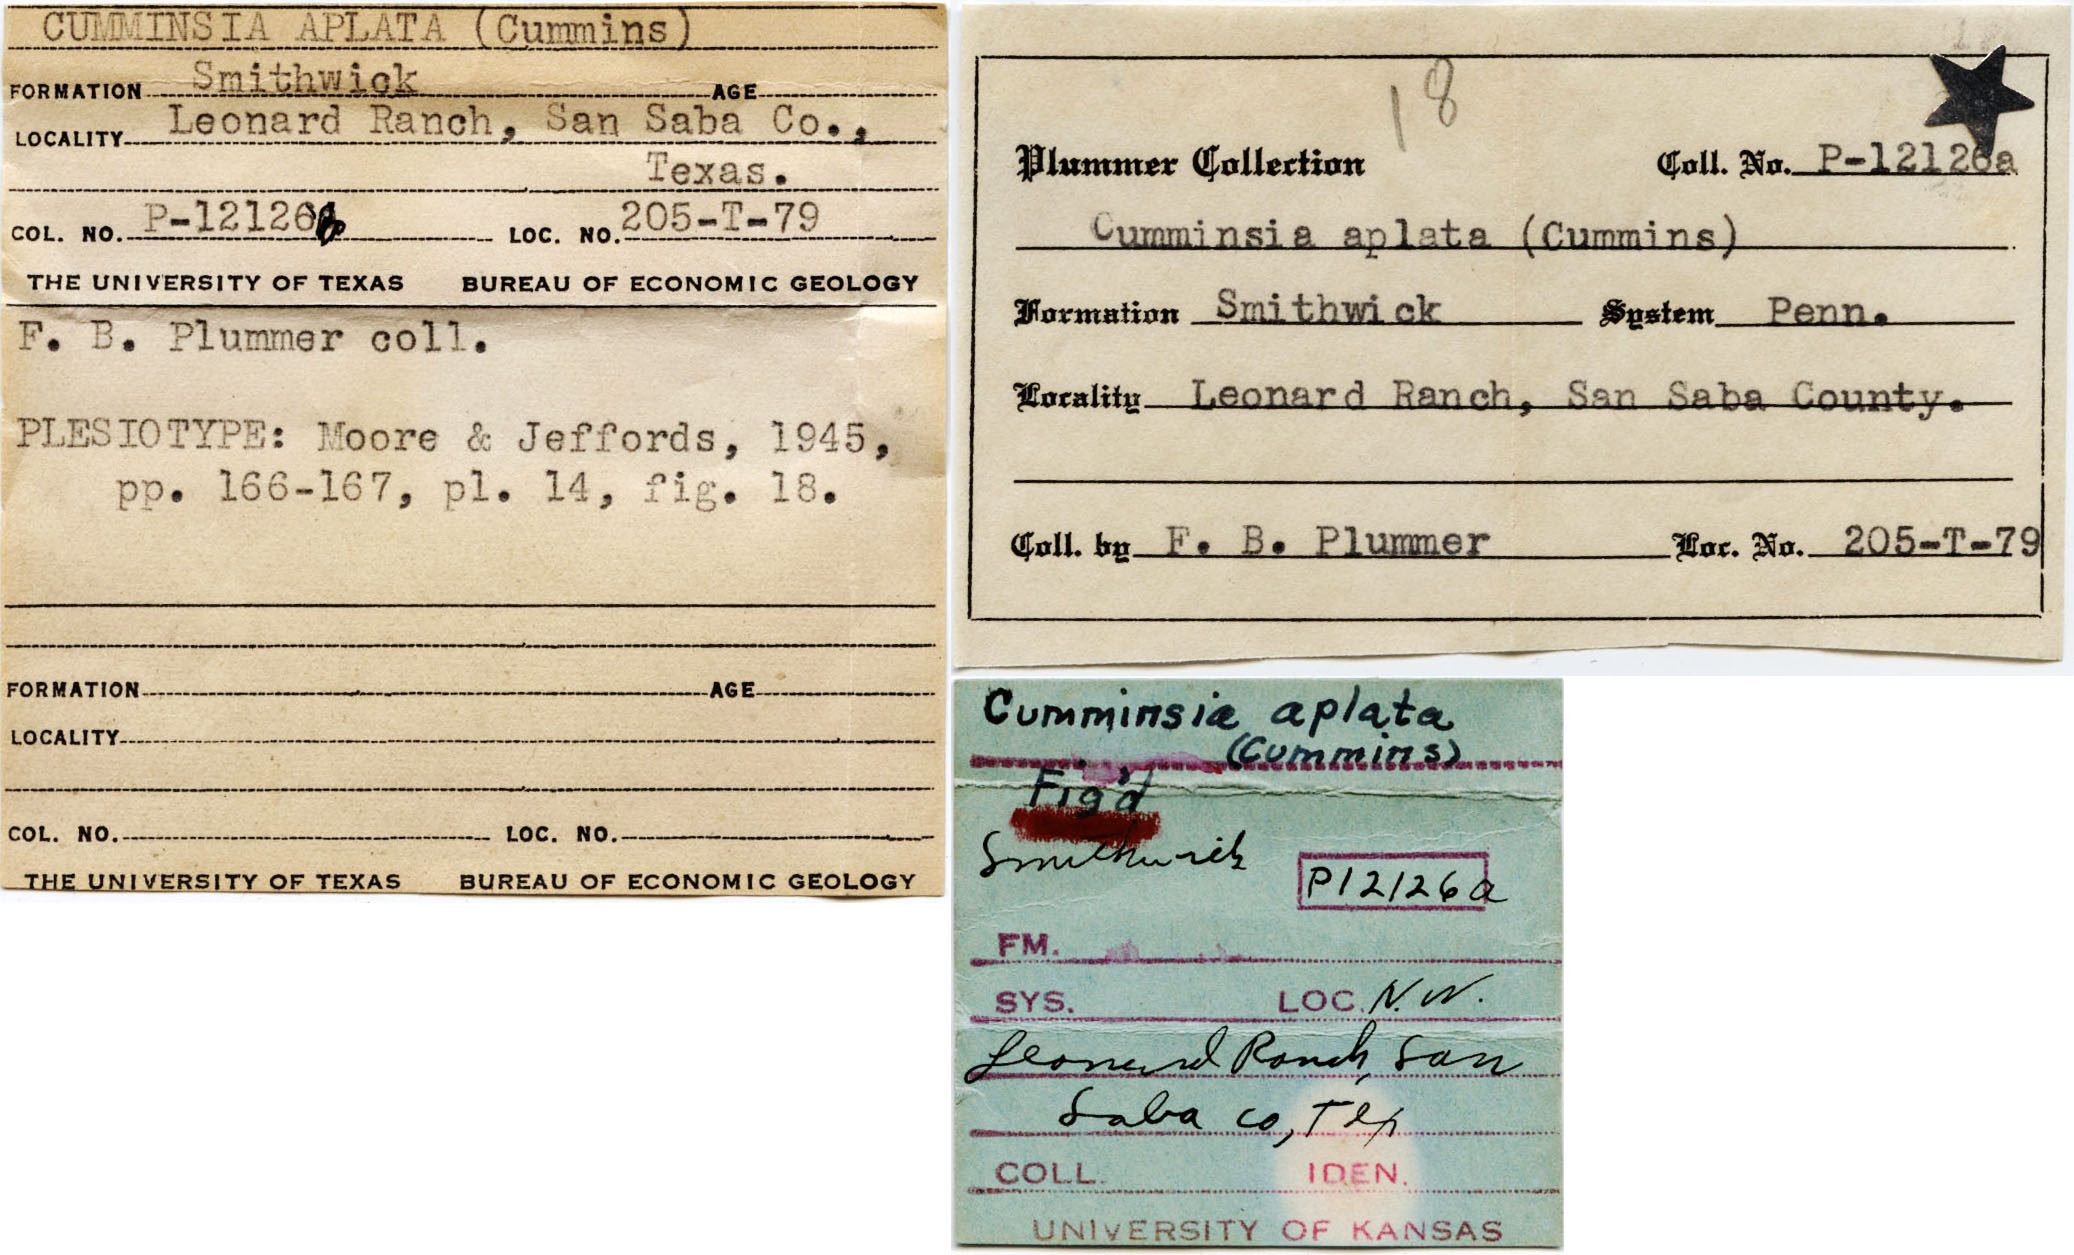 CUMMINSIA APLATA (Cummins)
FORMATION Smithwick AGE
LOCALITY Leonard Ranch, San Saba Co.,
Texas.
COL. NO. P-12126 LOC. NO. 205-T-79
THE UNIVERSITY OF TEXAS BUREAU OF ECONOMIC GEOLOGY
F. B. Plummer coll.
PLESIOTYPE: Moore & Jeffords, 1945,
pp. 166-167, pl. 14, fig. 18.
FORMATION AGE
LOCALITY
COL. NO. LOC. NO.
THE UNIVERSITY OF TEXAS BUREAU OF ECONOMIC GEOLOGY
18
Plummer Collection Coll. No. P-12126a
Cumminsia aplata (Cummins)
Formation Smithwick System Penn.
Locality Leonard Ranch, San Saba County.
Coll. by F. B. Plummer Loc. No. 205-T-79
Cumminsia aplata
(Cummins)
Fig'd
Smithwick
P12126a
FM.
SYS. LOC. N.W.
Leonard Ranch, San
Saba Co, Tex
COLL. IDEN.
UNIVERSITY OF KANSAS